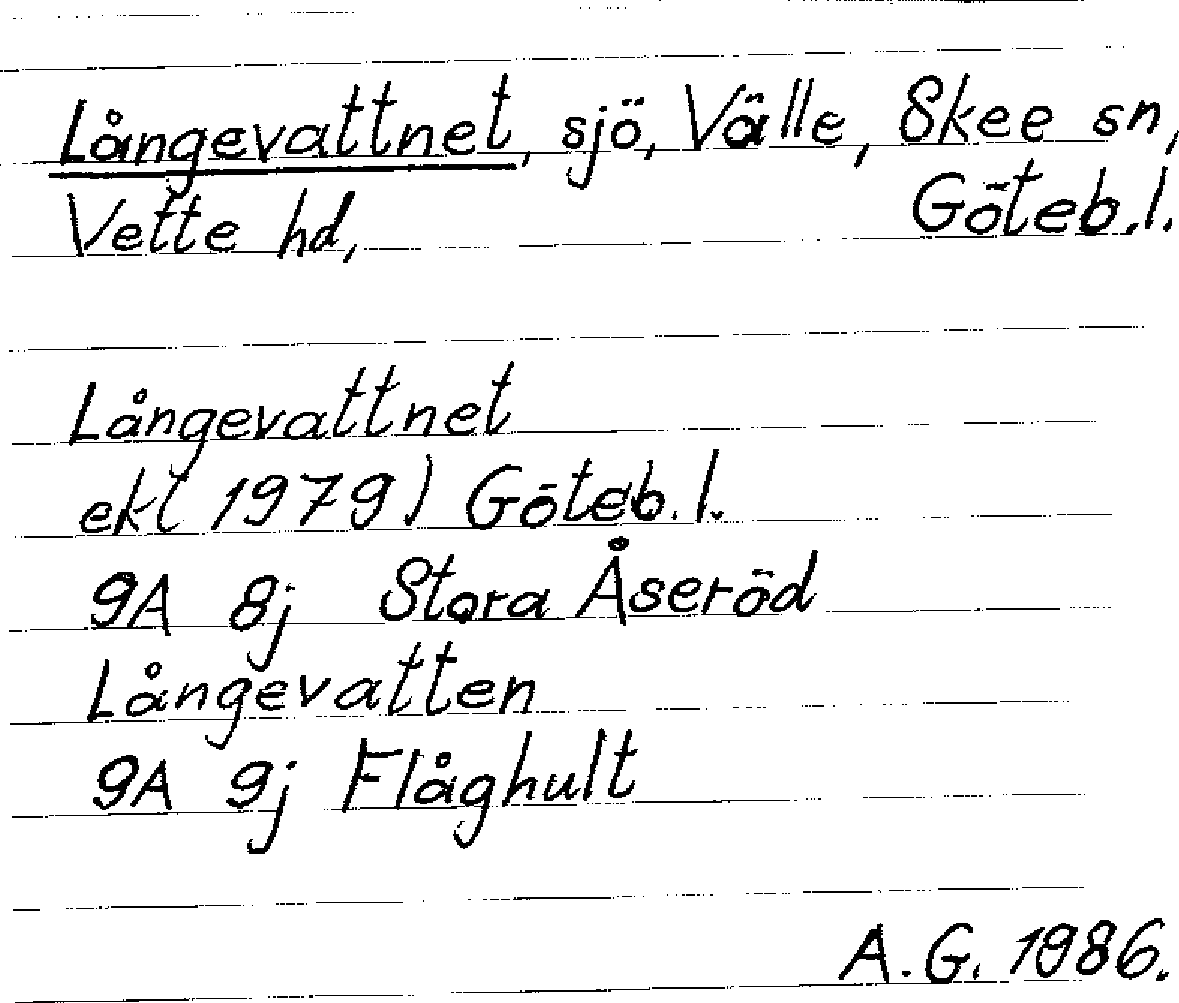 Långevattnet, sjö, Välle, Skee sn,
Vette hd, Göteb.l.
Långevattnet
ekt 1979) Göteb.l.
9A 8j Stora Åseröd
Långevatten
9A 9j Flåghult
A.G. 1986.